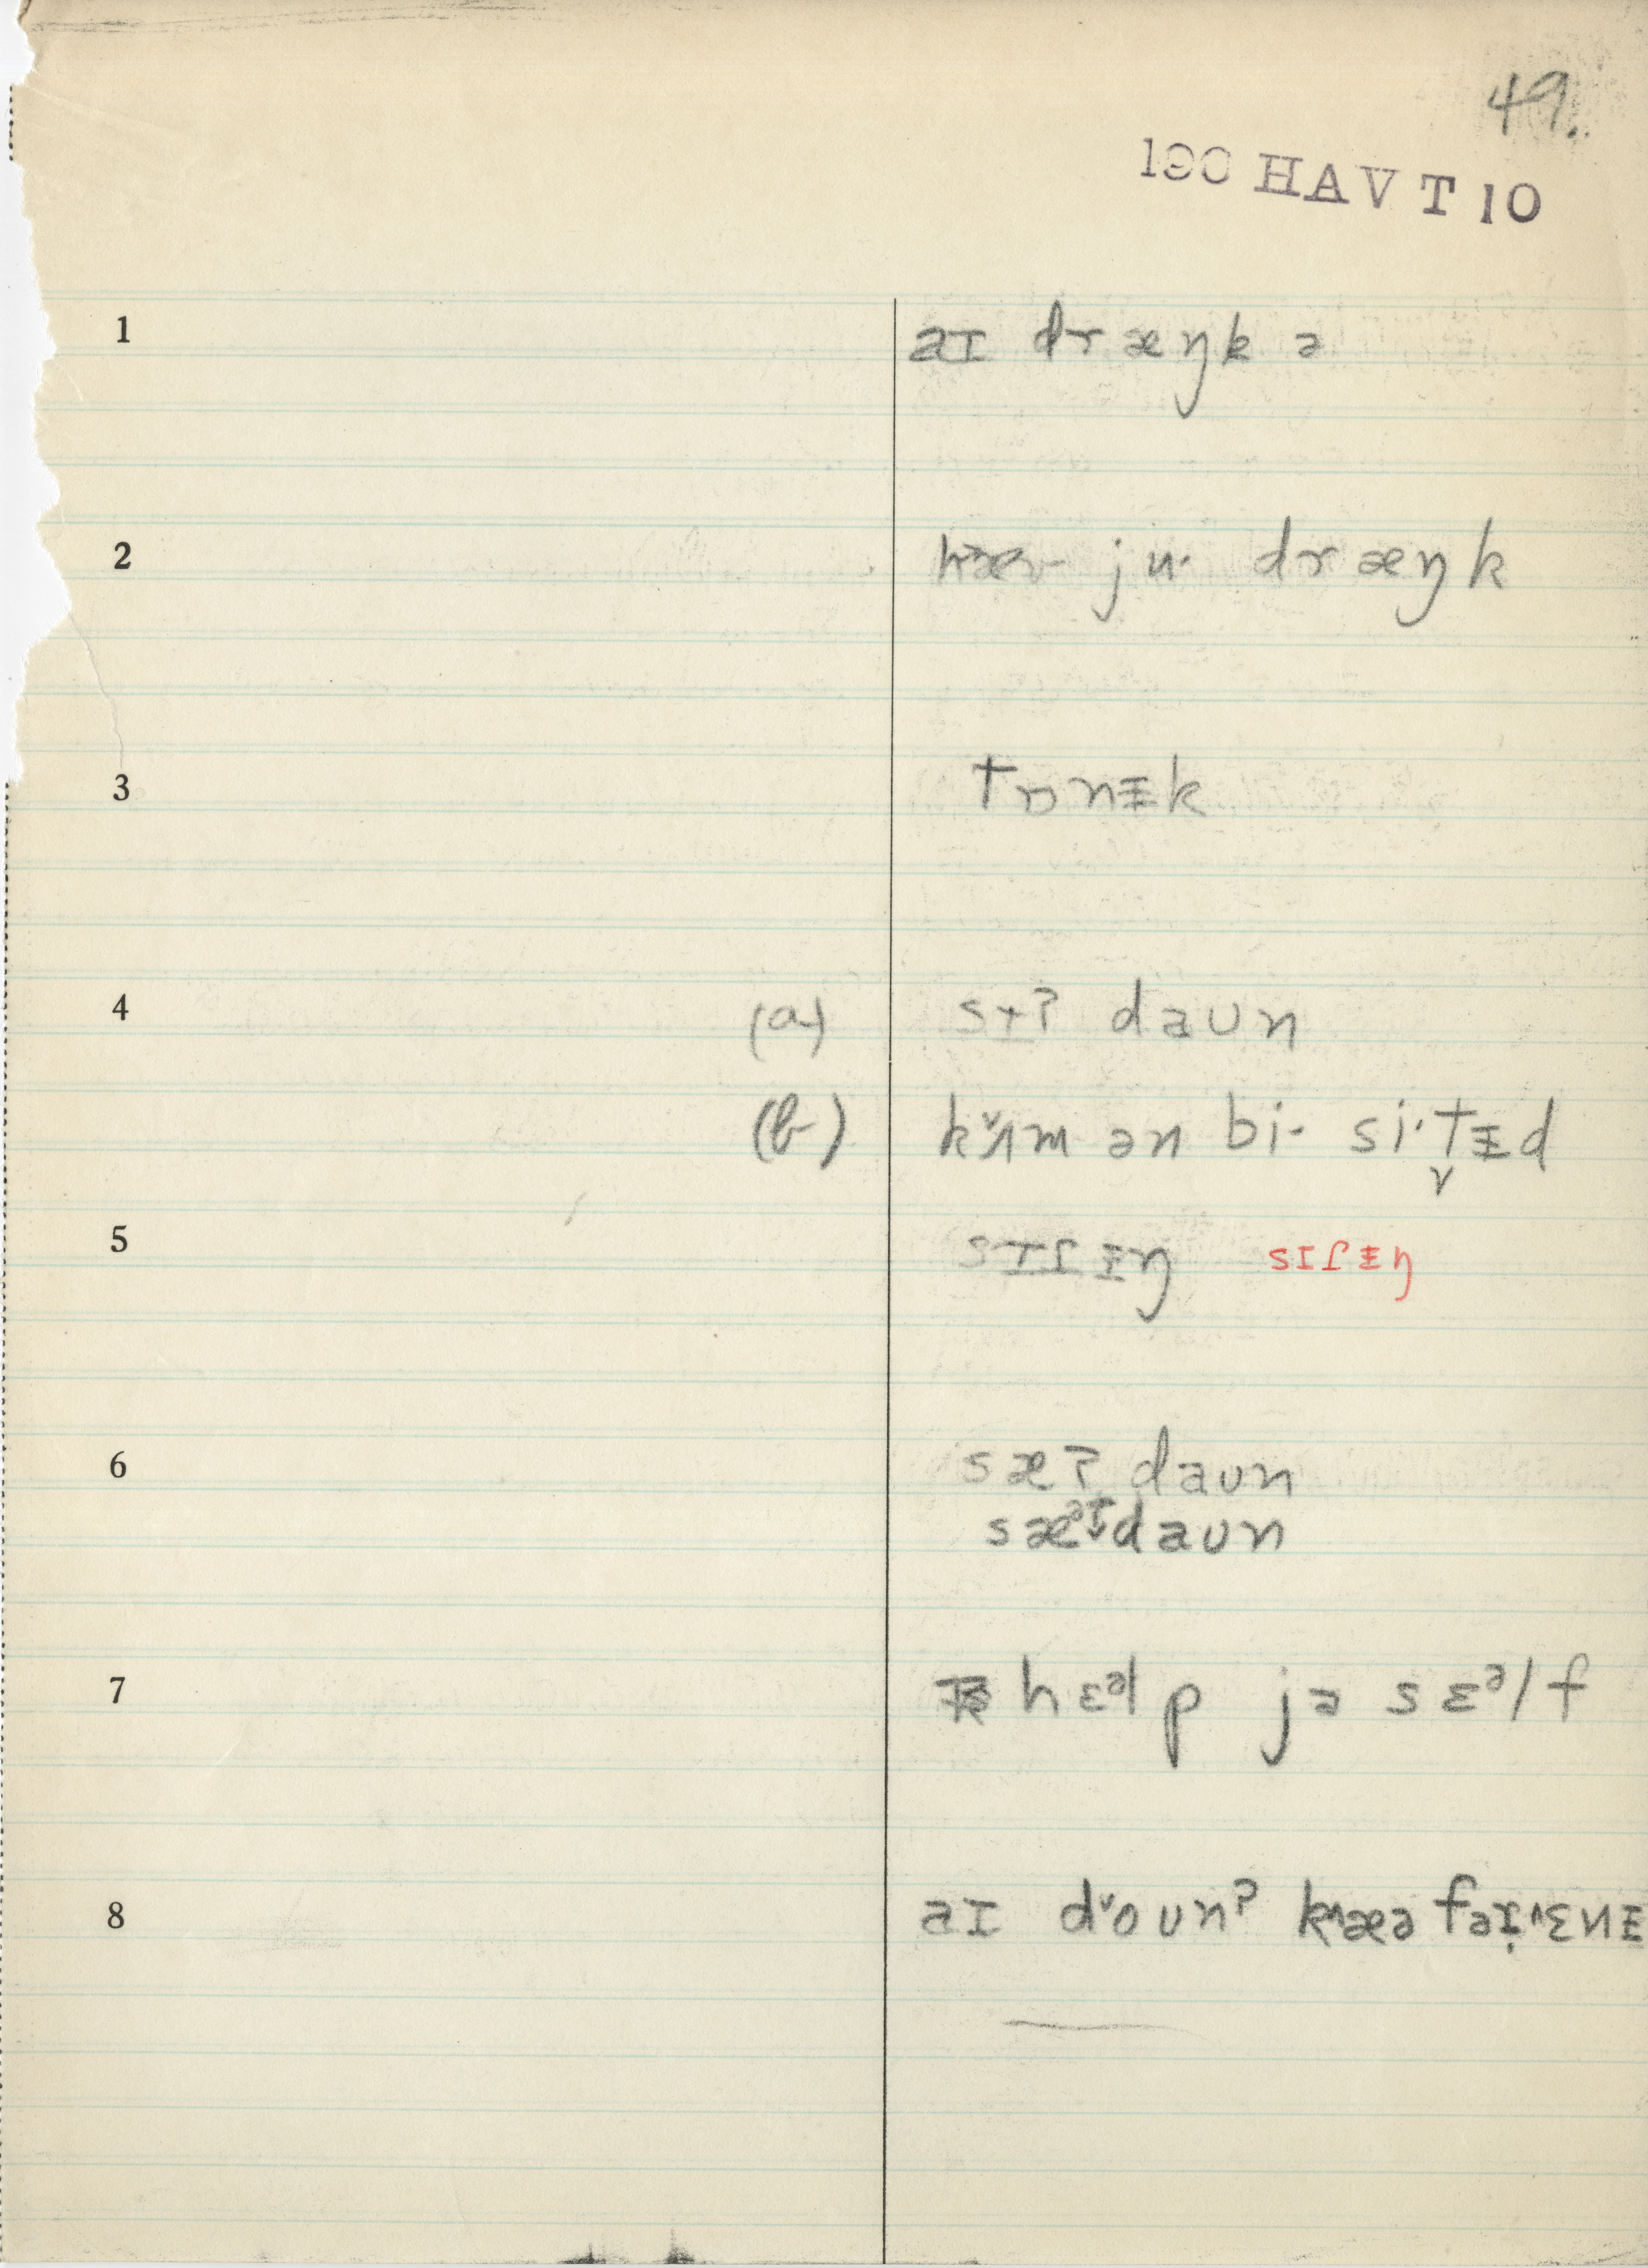 49.
190 HAV T 10
1 aɪ dræŋk ə
2 hæv ju· dræŋk
3 tɒnɪ̵k
4 (a) sɪ̵ʔ daun
(b) kʌ̌m ən bi· si·t̬ɪ̵d
5 sɪɾɪ̵ŋ sɪɾɪ̵ŋ
6 sæʔ daun
sæᵊt daun
7 hɛᵊlp jə sɛᵊlf
8 aɪ dˇounʔ